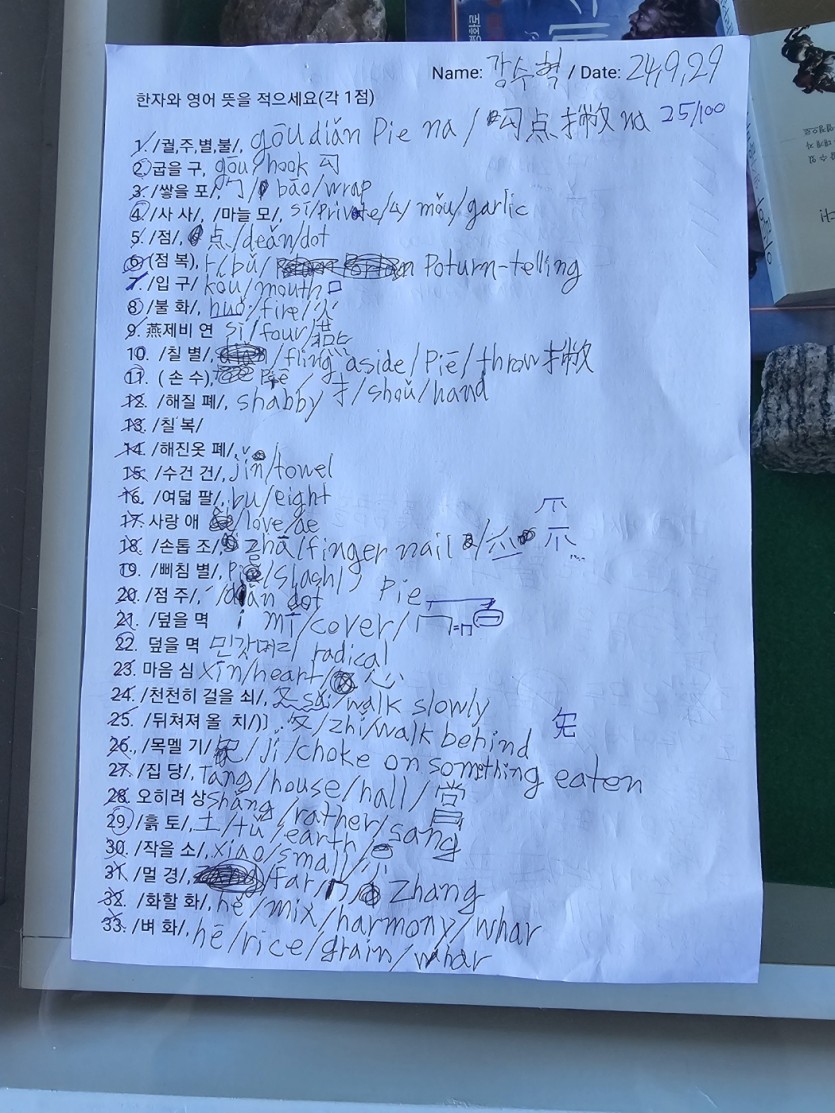 Name: 강수혁 / Date: 24,9,29
한자와 영어 뜻을 적으세요(각 1점)
25/100
1. /궐,주,별,불/, gōu diǎn Pie na / 勾点撇 na
2. 굽을 구, gōu/hook 勾
3. /쌓을 포/, 勹/ bāo/wrap
4. /사 사/, /마늘 모/, sī/private/厶/ mǒu/garlic
5. /점/, 点/deǎn/dot
6. (점 복), 卜/bǔ/ Poturn-telling
7. /입 구/ kǒu/mouth 口
8. /불 화/, huǒ/fire/火
9. 燕제비 연 sì/four/燕
10. /칠 별/, /fling aside/Piē/throw 撇
11. (손 수), 扌/shǒu/hand
12. /해질 폐/, shabby
13. /칠 복/
14. /해진옷 폐/,
15. /수건 건/, jīn/towel
16. /여덟 팔/, bu/eight
17. 사랑 애 /love/ae
18. /손톱 조/, zhǎ/finger nail / 爫
19. /삐침 별/, Piě/slash/ Pie
20. /점 주/, diǎn dot
21. /덮을 멱 mī/cover/冖=冖
22. 덮을 멱 민갓머리/ radical
23. 마음 심 xīn/heart/ 心
24. /천천히 걸을 쇠/, 夊 suī/walk slowly
25. /뒤쳐져 올 치/)] 夂/zhǐ/walk behind
26. /목멜 기/ 旡/jì/choke on something eaten
27. /집 당/, Táng/house/hall/堂
28. 오히려 상 shàng/rather/尚
29. /흙 토/, 土/tǔ/earth/sang
30. /작을 소/, xiǎo/small/小
31. /멀 경/, /far/冂 Zhang
32. /화할 화/, hé/mix/harmony/whar
33. /벼 화/, hé/rice/grain/whar